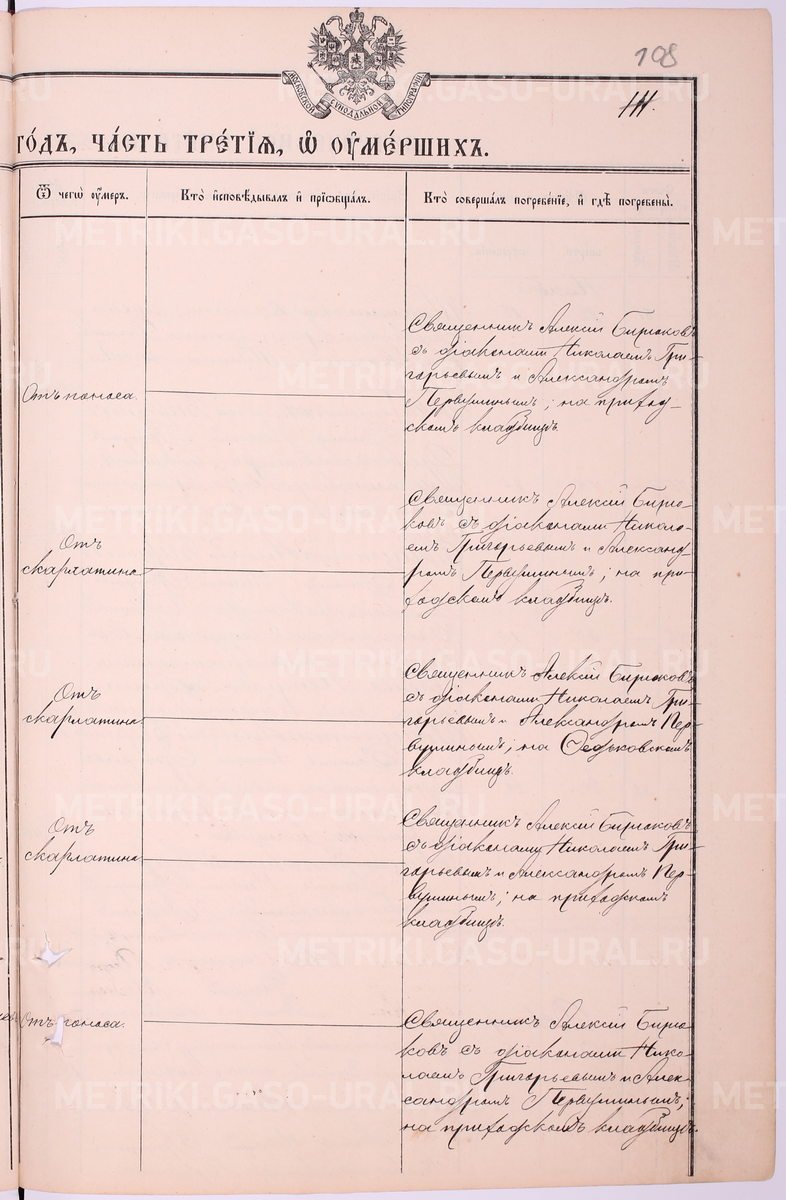 108
111.
МОСКОВСКОЙ СѴНОДАЛЬНОЙ ТИПОГРАФІИ
го́дъ, ча́сть тре́тїѧ, ѡ҆ ᲂу҆ме́ршихъ.
Ѿ чегѡ̀ ᲂу҆́меръ.
Кто̀ и҆сповѣ́дывалъ и҆ прїѡбща́лъ.
Кто̀ соверша́лъ погребе́нїе, и҆ гдѣ̀ погребены̀.
Отъ поноса.
Священникъ Алексій Бирюковъ
съ діаконами Николаемъ Гри-
горьевымъ и Александромъ
Первушинымъ; на приход-
скомъ кладбищѣ.
Отъ
скарлатины
Священникъ Алексій Бирю-
ковъ съ діаконами Никола-
емъ Григорьевымъ и Александ-
ромъ Первушинымъ; на при-
ходскомъ кладбищѣ.
Отъ
скарлатины
Священникъ Алексій Бирюковъ
съ діаконами Николаемъ Гри-
горьевымъ и Александромъ Пер-
вушинымъ; на Ѳедьковскомъ
кладбищѣ.
Отъ
скарлатины
Священникъ Алексій Бирюковъ
съ діаконами Николаемъ Гри-
горьевымъ и Александромъ Пер-
вушинымъ; на приходскомъ
кладбищѣ.
Отъ поноса.
Священникъ Алексій Бирю-
ковъ съ діаконами Нико-
лаемъ Григорьевымъ и Алек-
сандромъ Первушинымъ;
на приходскомъ кладбищѣ.
METRIKI.GASO-URAL.RU